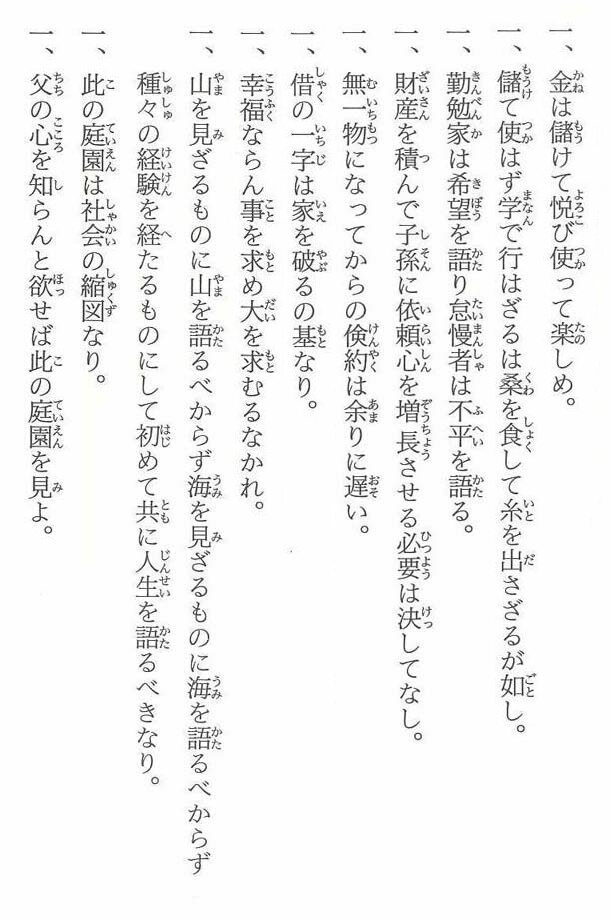 一、金は儲けて悦び使って楽しめ。
一、儲て使はず学で行はざるは桑を食して糸を出さざるが如し。
一、勤勉家は希望を語り怠慢者は不平を語る。
一、財産を積んで子孫に依頼心を増長させる必要は決してなし。
一、無一物になってからの倹約は余りに遅い。
一、借の一字は家を破るの基なり。
一、幸福ならん事を求め大を求むるなかれ。
一、山を見ざるものに山を語るべからず海を見ざるものに海を語るべからず
種々の経験を経たるものにして初めて共に人生を語るべきなり。
一、此の庭園は社会の縮図なり。
一、父の心を知らんと欲せば此の庭園を見よ。